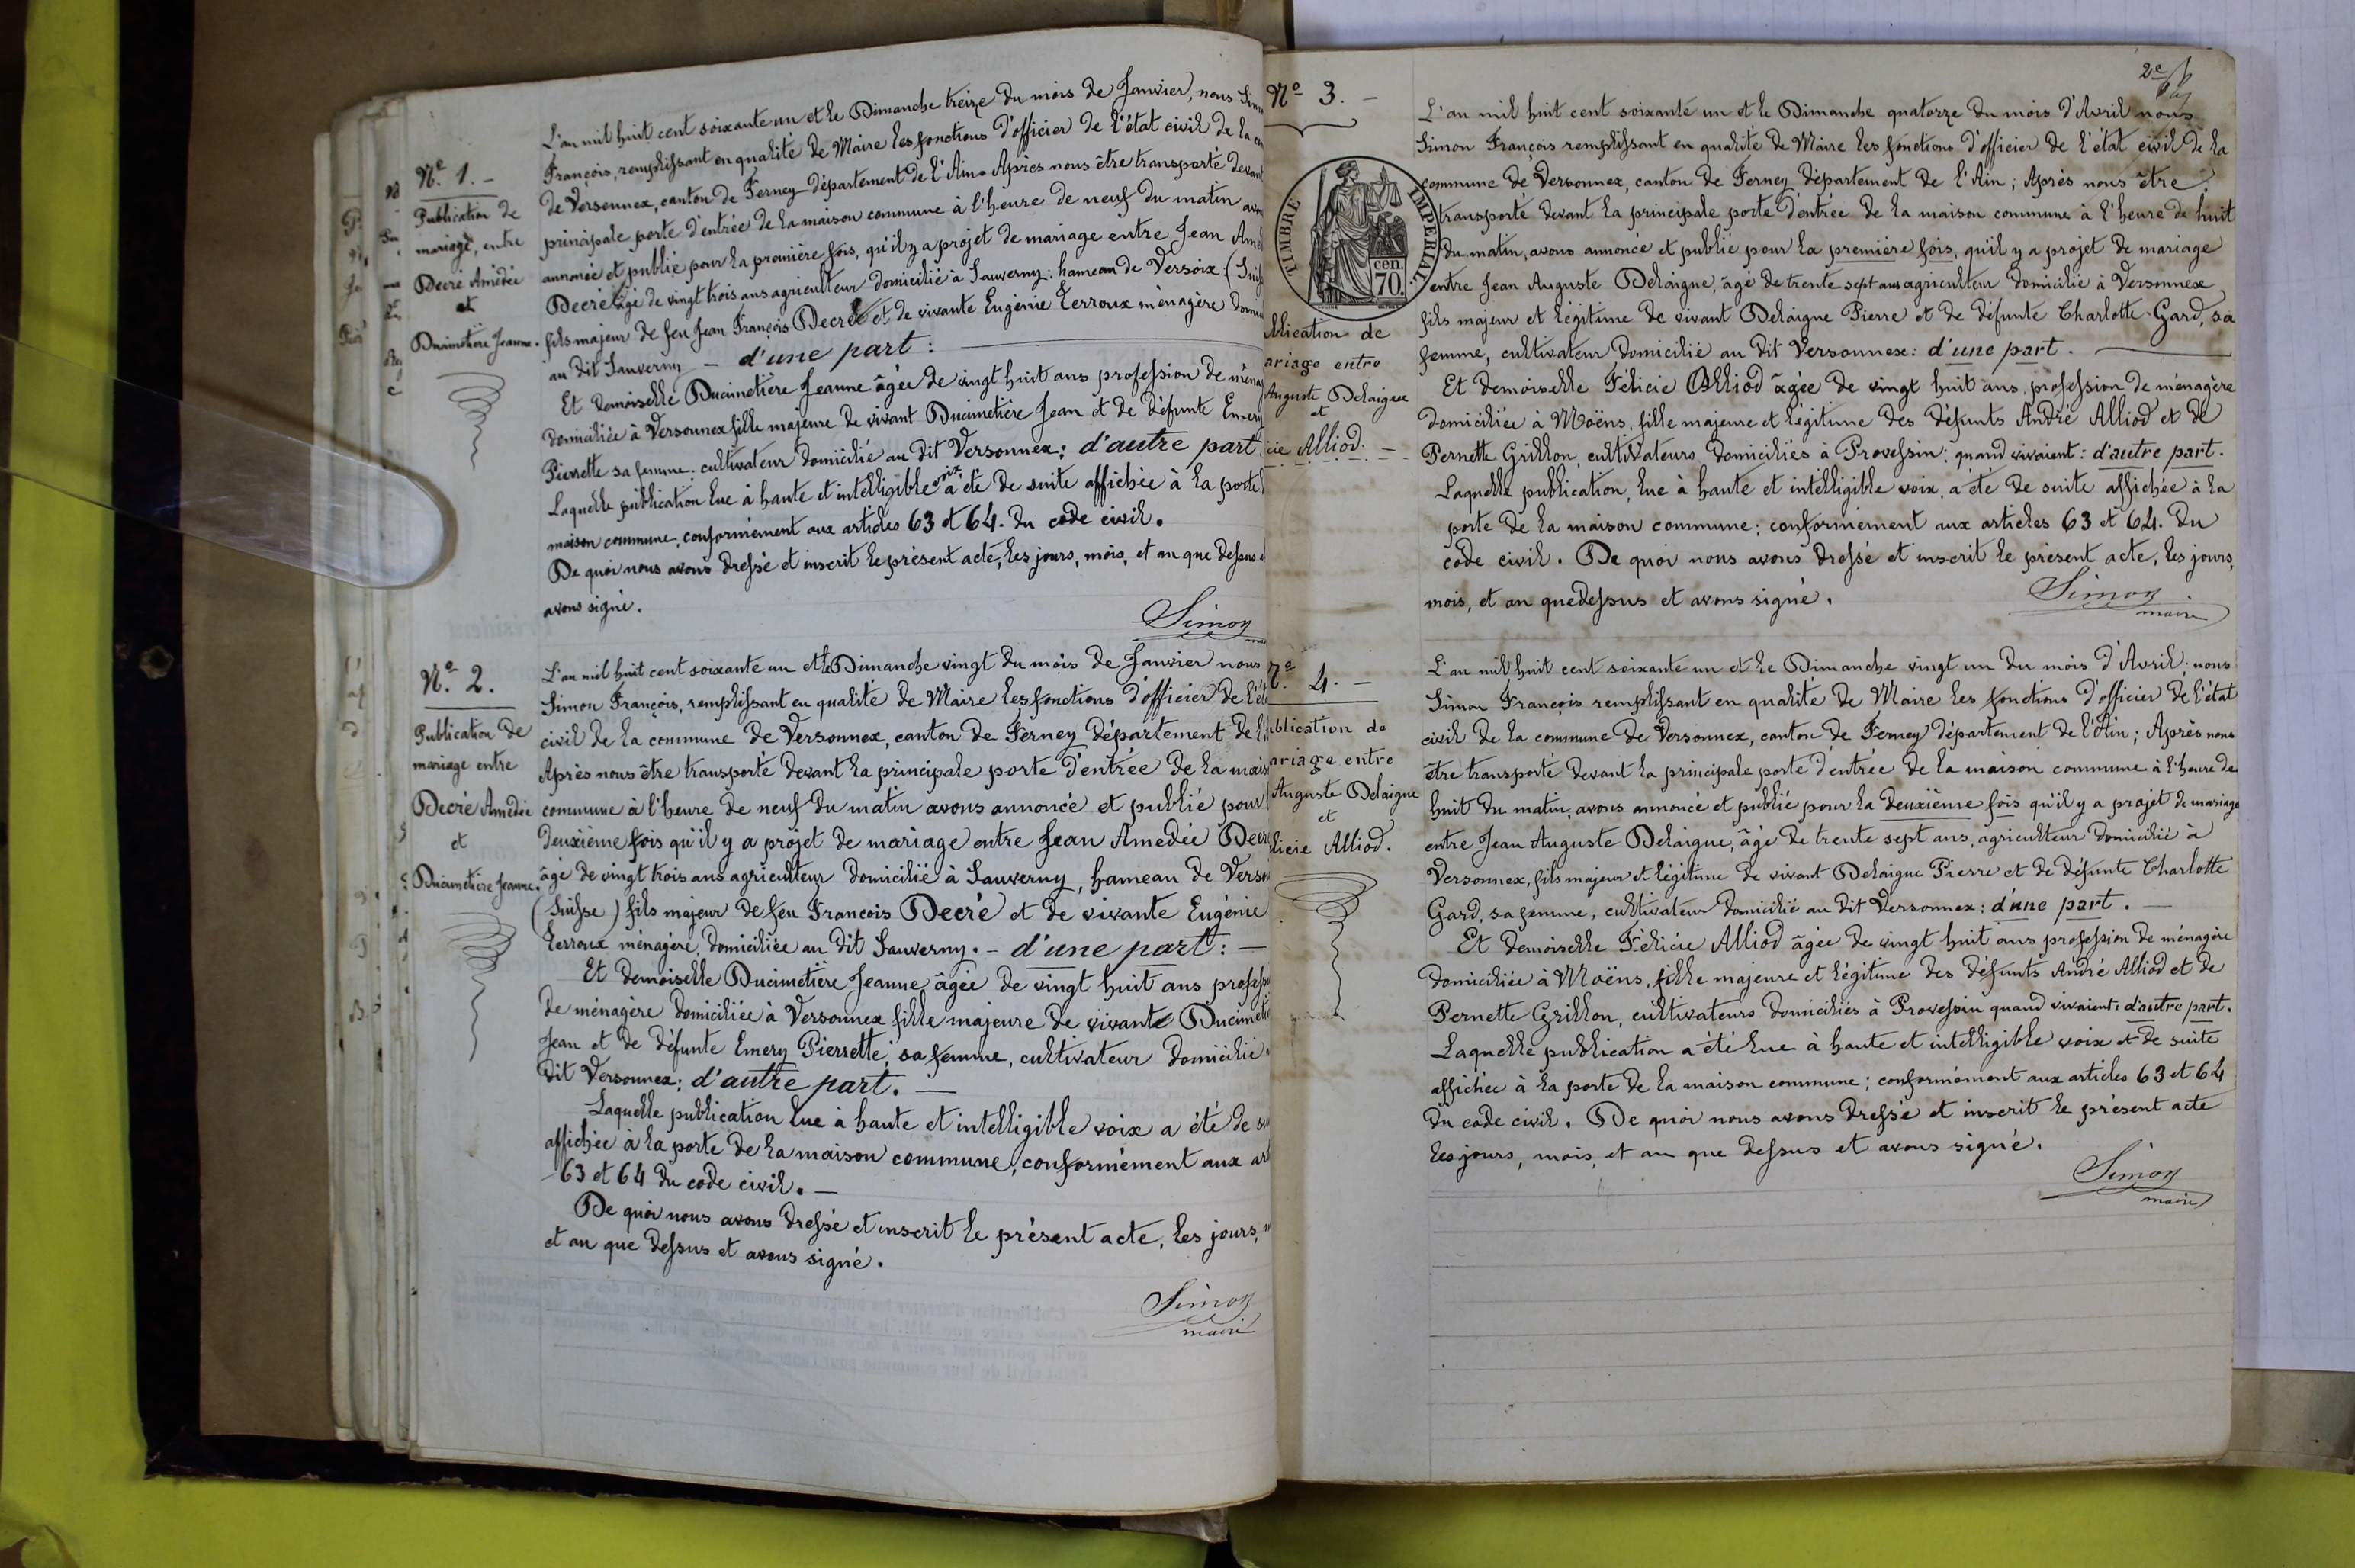 Nº 1. –
Publication de
mariage, entre
Decré Amédée
et
Ducimetière Jeanne.
L'an mil huit cent soixante un et le Dimanche treize du mois de Janvier, nous Sim
François, remplissant en qualité de Maire les fonctions d'officier de l'état civil de la
de Versonnex, canton de Ferney département de l'Ain. Après nous être transporté devant
principale porte d'entrée de la maison commune à l'heure de neuf du matin avon
annoncé et publié pour la première fois, qu'il y a projet de mariage entre Jean Amé
Decré âgé de vingt trois ans agriculteur domicilié à Sauverny : hameau de Versoix (Suis
fils majeur de feu Jean François Decré et de vivante Eugénie Terroux ménagère domi
au dit Sauverny – d'une part :
Et demoiselle Ducimetière Jeanne âgée de vingt huit ans profession de ménag
domiciliée à Versonnex fille majeure de vivant Ducimetière Jean et de défunte Emery
Pierrette sa femme : cultivateur domicilié au dit Versonnex ; d'autre part.
Laquelle publication lue à haute et intelligible voix a été de suite affichée à la porte
maison commune, conformément aux articles 63 et 64. du code civil.
De quoi nous avons dressé et inscrit le présent acte, les jours, mois, et an que dessus
avons signé.
Simon
Nº 2.
Publication de
mariage entre
Decré Amédée
et
Ducimetière Jeanne.
L'an mil huit cent soixante un et le Dimanche vingt du mois de Janvier nous
Simon François, remplissant en qualité de Maire les fonctions d'officier de l'ét
civil de la commune de Versonnex, canton de Ferney département de l'
Après nous être transporté devant la principale porte d'entrée de la mais
commune à l'heure de neuf du matin avons annoncé et publié pour
deuxième fois qu'il y a projet de mariage entre Jean Amedée Decr
âgé de vingt trois ans agriculteur domicilié à Sauverny, hameau de Verso
(Suisse) fils majeur de feu François Decré et de vivante Eugénie
Terroux ménagère, domiciliée au dit Sauverny. – d'une part : –
Et demoiselle Ducimetière Jeanne âgée de vingt huit ans profess
de ménagère domiciliée à Versonnex fille majeure de vivante Ducimeti
Jean et de défunte Emery Pierrette, sa femme, cultivateur domicilié
dit Versonnex ; d'autre part. –
Laquelle publication lue à haute et intelligible voix a été de su
affichée à la porte de la maison commune, conformément aux art
63 et 64 du code civil. –
De quoi nous avons dressé et inscrit le présent acte, les jours, m
et an que dessus et avons signé.
Simon
maire
2e
Nº 3. –
TIMBRE IMPERIAL
cen.
70.
blication de
ariage entre
Auguste Delaigue
et
icie Alliod. –
L'an mil huit cent soixante un et le Dimanche quatorze du mois d'Avril nous
Simon François remplissant en qualité de Maire les fonctions d'officier de l'état civil de la
commune de Versonnex, canton de Ferney département de l'Ain ; Après nous être
transporté devant la principale porte d'entrée de la maison commune à l'heure de huit
du matin, avons annoncé et publié pour la première fois, qu'il y a projet de mariage
entre Jean Auguste Delaigue, âgé de trente sept ans agriculteur domicilié à Versonnex
fils majeur et légitime de vivant Delaigue Pierre et de défunte Charlotte Gard, sa
femme, cultivateur domicilié au dit Versonnex : d'une part.
Et demoiselle Félicie Alliod âgée de vingt huit ans, profession de ménagère
domiciliée à Moëns, fille majeure et légitime des défunts André Alliod et de
Pernette Grillon, cultivateurs domiciliés à Prevessin : quand vivaient : d'autre part.
Laquelle publication, lue à haute et intelligible voix, a été de suite affichée à la
porte de la maison commune ; conformément aux articles 63 et 64. du
code civil. De quoi nous avons dressé et inscrit le présent acte, les jours,
mois, et an que dessus et avons signé.
Simon
maire
4. –
ublication de
ariage entre
Auguste Delaigue
et
licie Alliod.
L'an mil huit cent soixante un et le Dimanche vingt un du mois d'Avril : nous
Simon François remplissant en qualité de Maire les fonctions d'officier de l'état
civil de la commune de Versonnex, canton de Ferney département de l'Ain ; Après nous
être transporté devant la principale porte d'entrée de la maison commune à l'heure de
huit du matin, avons annoncé et publié pour la deuxième fois qu'il y a projet de mariage
entre Jean Auguste Delaigue, âgé de trente sept ans, agriculteur domicilié à
Versonnex, fils majeur et légitime de vivant Delaigue Pierre et de défunte Charlotte
Gard, sa femme, cultivateur domicilié au dit Versonnex : d'une part. –
Et demoiselle Félicie Alliod âgée de vingt huit ans profession de ménagère
domiciliée à Moëns, fille majeure et légitime des défunts André Alliod et de
Pernette Grillon, cultivateurs domiciliés à Prevessin quand vivaient : d'autre part.
Laquelle publication a été lue à haute et intelligible voix et de suite
affichée à la porte de la maison commune ; conformément aux articles 63 et 64
du code civil. De quoi nous avons dressé et inscrit le présent acte
les jours, mois, et an que dessus et avons signé.
Simon
maire